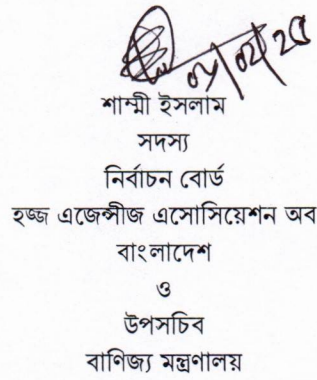 ০৮/০২/২৫
শাম্মী ইসলাম
সদস্য
নির্বাচন বোর্ড
হজ্জ এজেন্সীজ এসোসিয়েশন অব
বাংলাদেশ
ও
উপসচিব
বাণিজ্য মন্ত্রণালয়